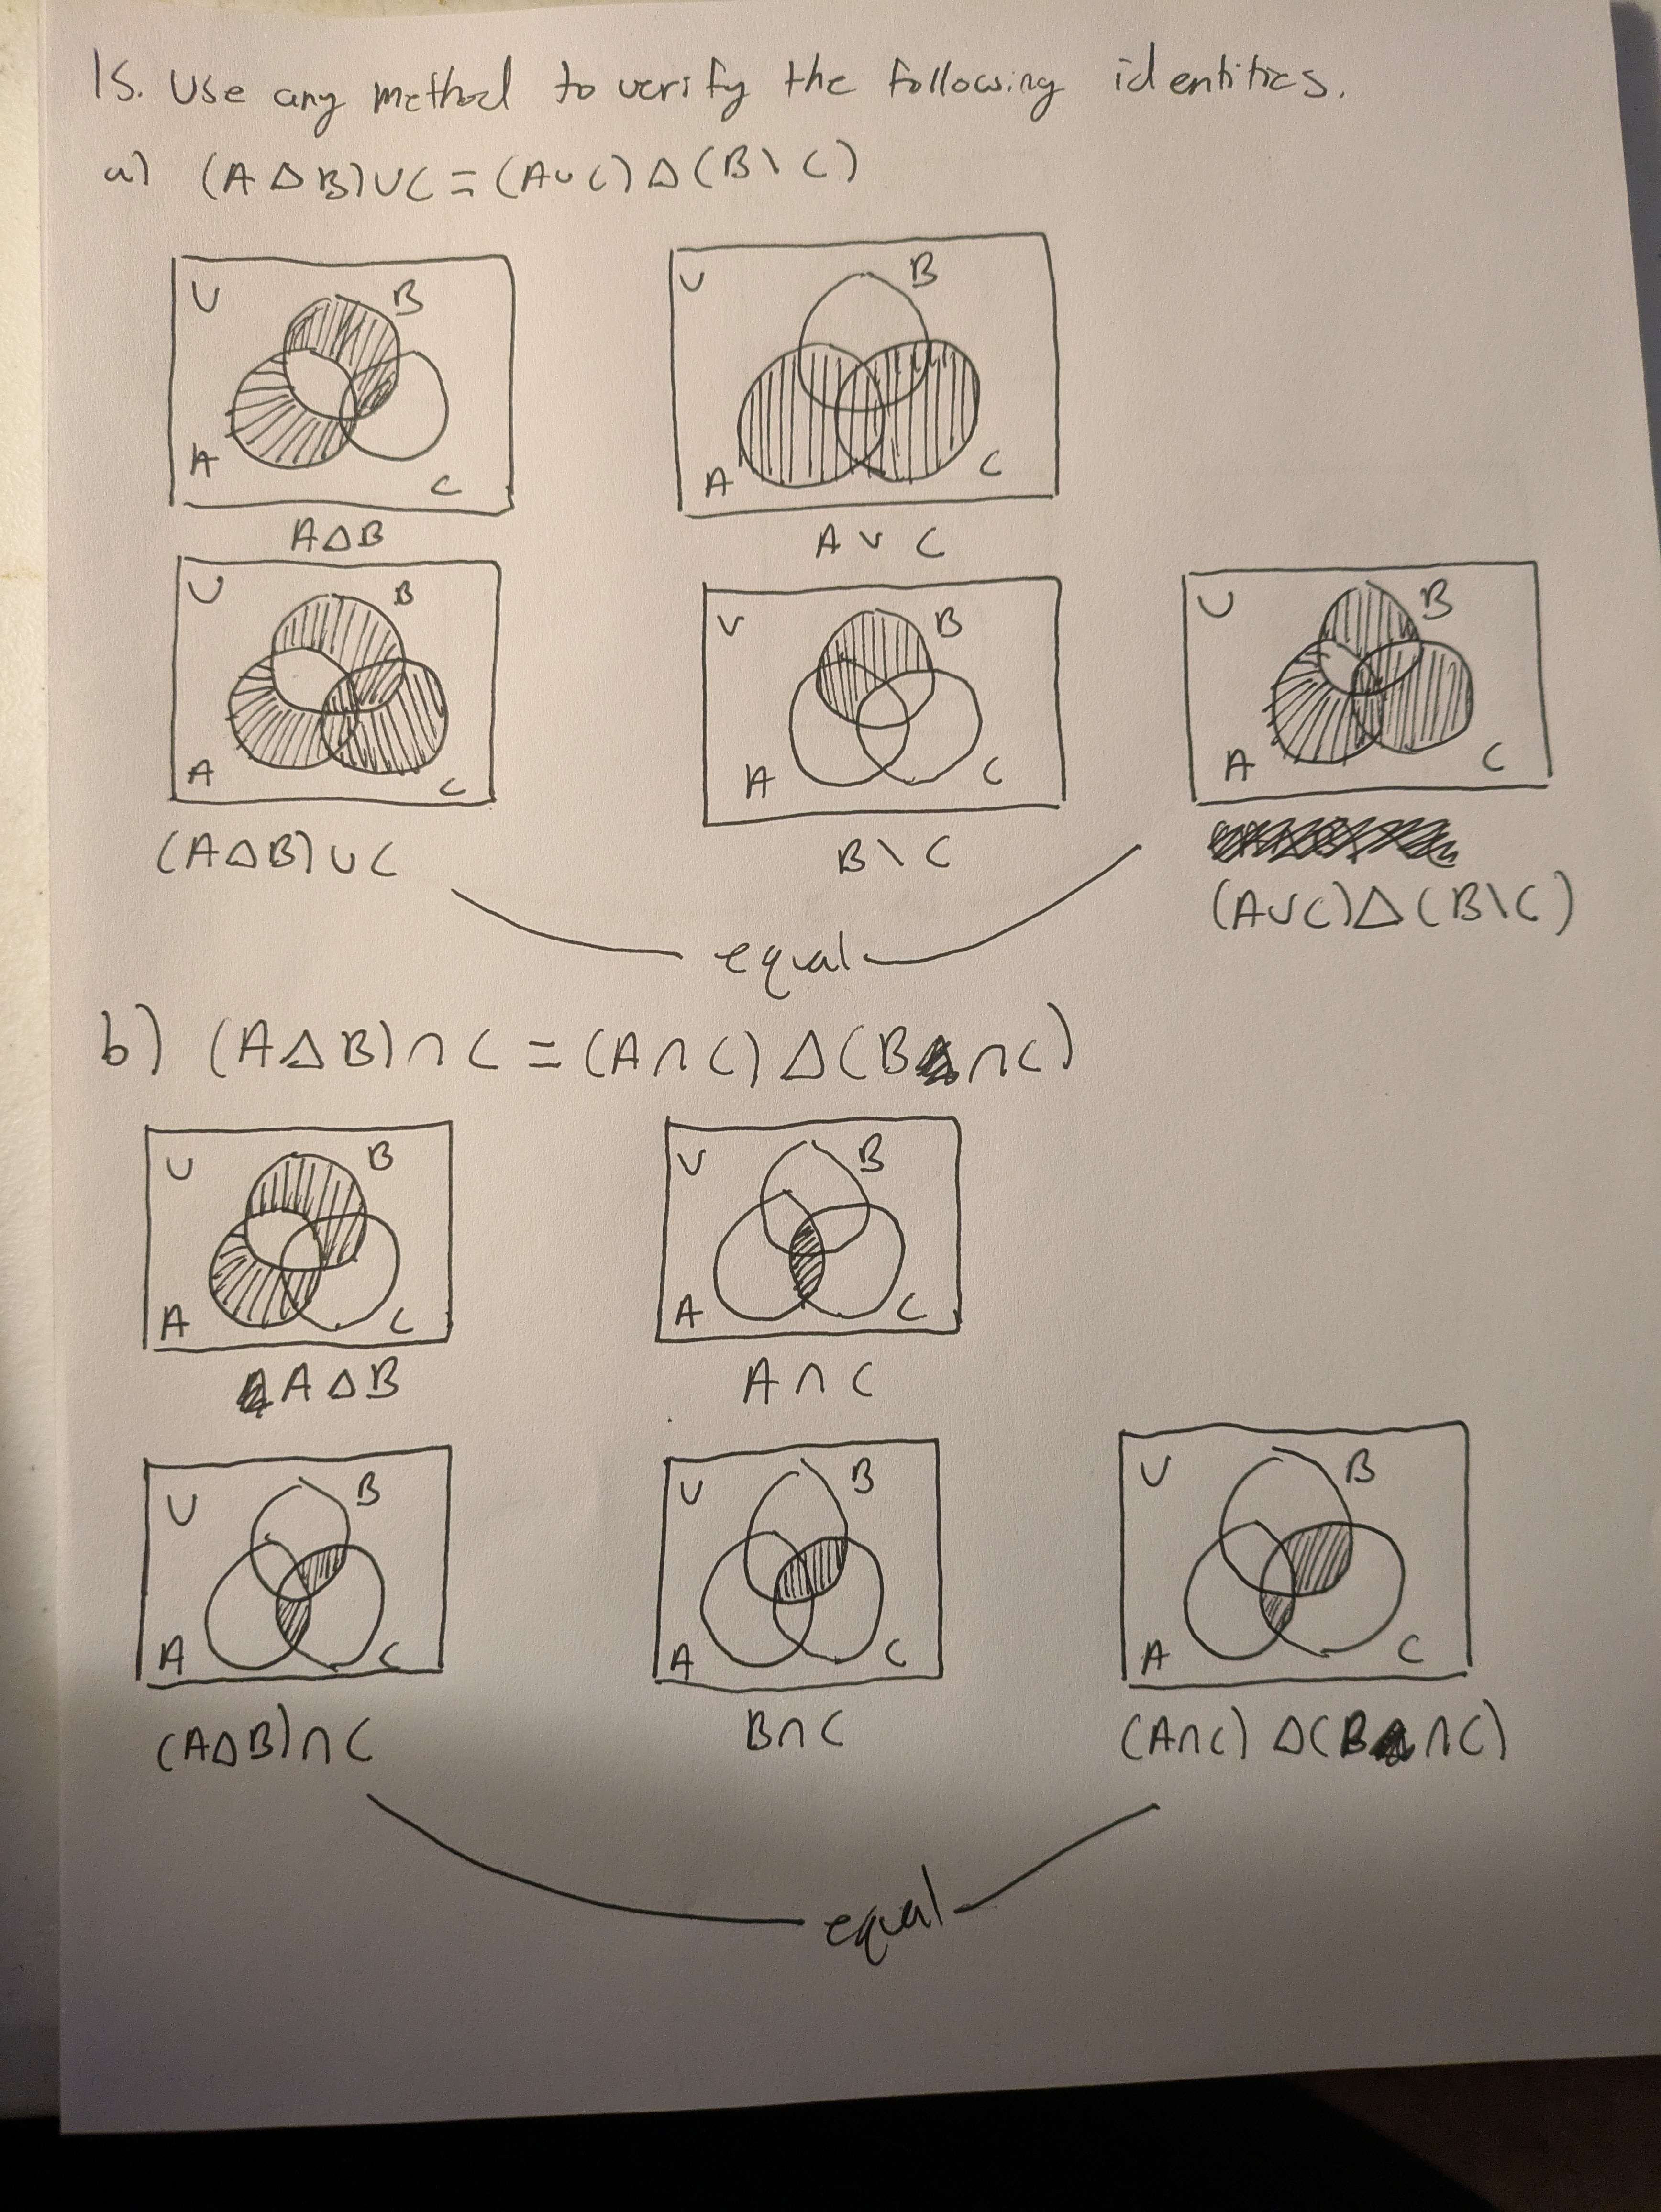 15. Use any method to verify the following identities.
a) (A Δ B) ∪ C = (A ∪ C) Δ (B \ C)
U B A C
U B A C
A Δ B
A ∪ C
U B A C
U B A C
U B A C
(A Δ B) ∪ C
B \ C
(A ∪ C) Δ (B \ C)
equal
b) (A Δ B) ∩ C = (A ∩ C) Δ (B ∩ C)
U B A C
U B A C
A Δ B
A ∩ C
U B A C
U B A C
U B A C
(A Δ B) ∩ C
B ∩ C
(A ∩ C) Δ (B ∩ C)
equal